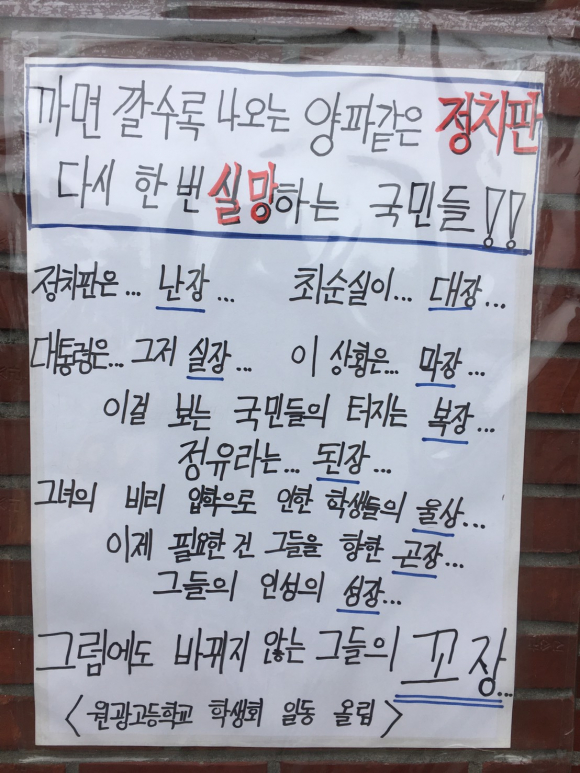 까면 깔수록 나오는 양파같은 정치판
다시 한 번 실망하는 국민들!!
정치판은... 난장... 최순실이... 대장...
대통령은... 그저 실장... 이 상황은... 막장...
이걸 보는 국민들의 터지는 복장...
정유라는... 된장...
그녀의 비리 입학으로 인한 학생들의 울상...
이제 필요한 건 그들을 향한 곤장...
그들의 인성의 성장...
그럼에도 바뀌지 않는 그들의 꼬장...
<원광고등학교 학생회 일동 올림>